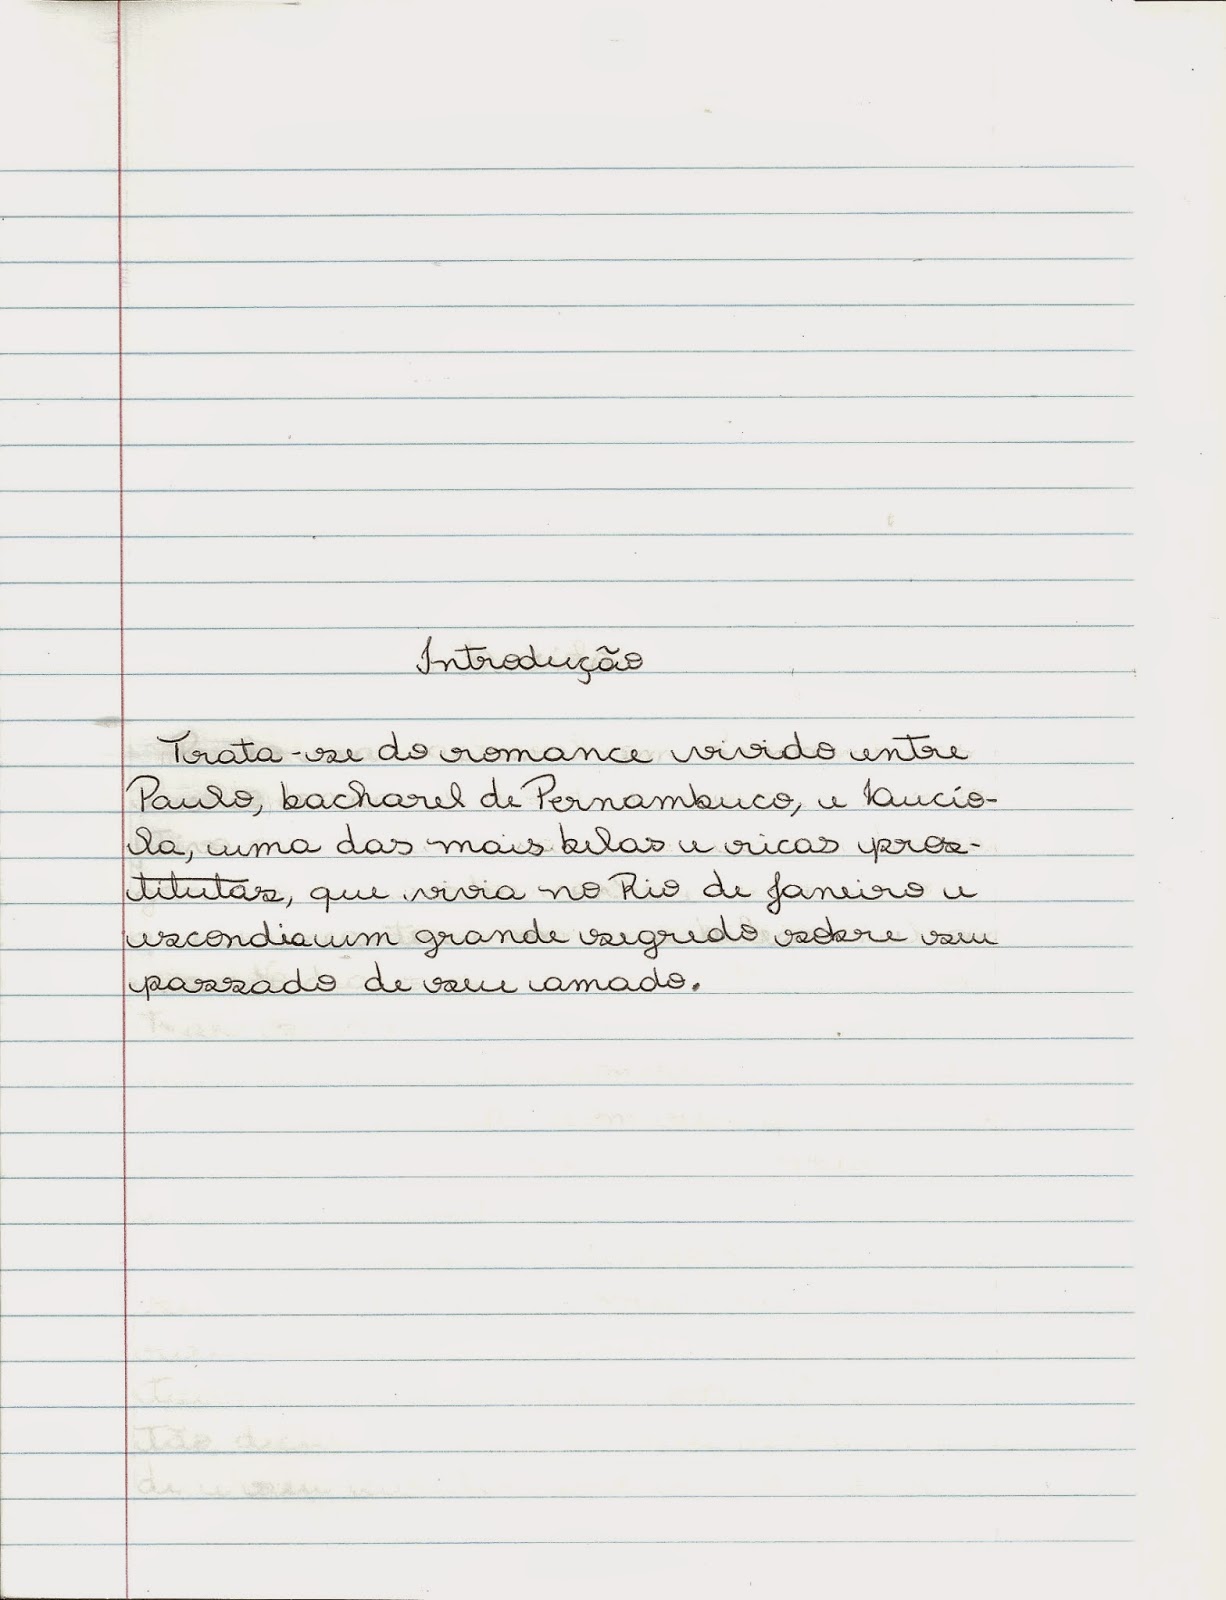 Introdução
Trata-se do romance vivido entre
Paulo, bacharel de Pernambuco, e Laucío-
la, uma das mais belas e ricas pros-
titutas, que vivia no Rio de Janeiro e
escondia um grande segredo sobre seu
passado de seu amado.